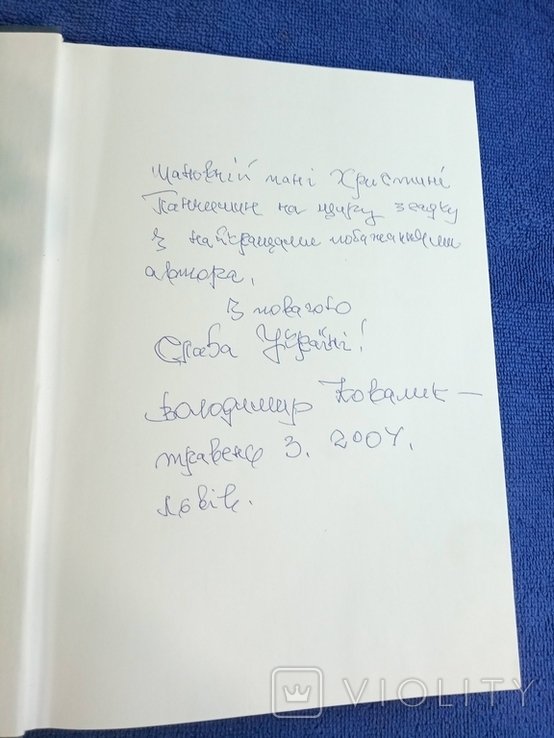 Шановній пані Христині
на щиру згадку
з найкращими побажаннями
автора,
З повагою
Слава Україні!
Володимир Ковалик –
травень 3. 2004.
Львів.
VIOLITY